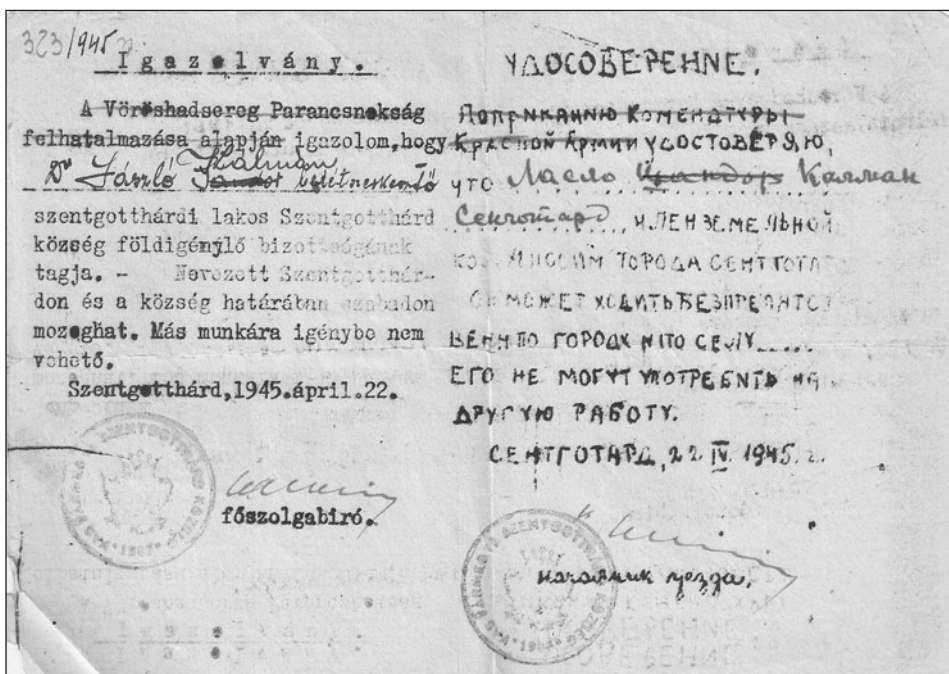 323/945
Igazolvány.
A Vöröshadsereg Parancsnokság
felhatalmazása alapján igazolom, hogy
Dr László Sándor Kálmán
szentgotthárdi lakos Szentgotthárd
község földigénylő bizottságának
tagja. - Nevezett Szentgotthár-
don és a község határában szabadon
mozoghat. Más munkára igénybe nem
vehető.
Szentgotthárd, 1945. április. 22.
főszolgabiró.
УДОСОВЕРЕНИЕ.
КОМЕНДТУРЫ
КРАСНОЙ АРМИИ УДОСТОВЕРЯЮ,
что Ласло Шандор Калман
Сенготард, ЧЛЕН ЗЕМЕЛЬНОЙ
ГОРОДА СЕНТГОТАР
ОН МОЖЕТ ХОДИТЬ БЕЗПРЕПЯТСТ
ВЕНН ПО ГОРОДУ
ЕГО НЕ МОГУТ УПОТРЕБИТЬ НА
ДРУГУЮ РАБОТУ.
СЕНТГОТАРД, 22 IV. 1945. г.
начальник уезда.